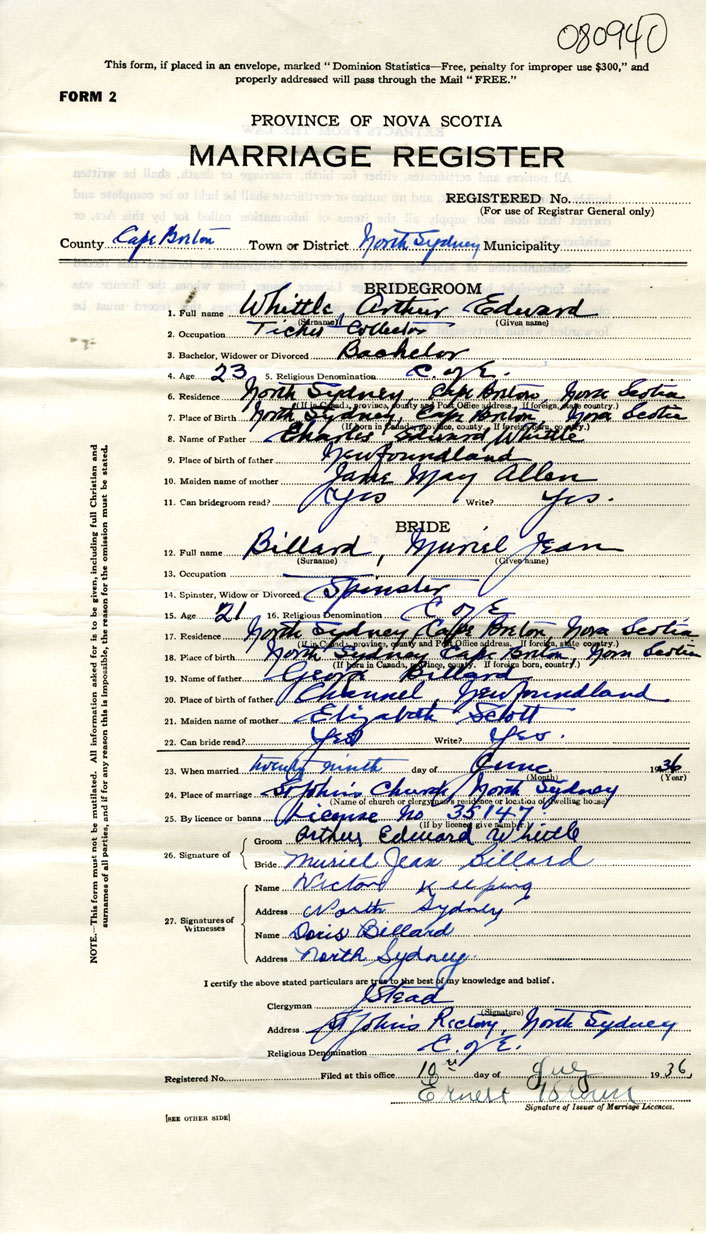 080940
This form, if placed in an envelope, marked "Dominion Statistics—Free, penalty for improper use $300," and
properly addressed will pass through the Mail "FREE."
FORM 2
PROVINCE OF NOVA SCOTIA
MARRIAGE REGISTER
REGISTERED No.
(For use of Registrar General only)
County Cape Breton Town or District North Sydney Municipality
BRIDEGROOM
1. Full name Whittle, Arthur Edward
(Surname) (Given name)
2. Occupation Ticket Collector
3. Bachelor, Widower or Divorced Bachelor
4. Age 23 5. Religious Denomination C. of E.
6. Residence North Sydney, Cape Breton, Nova Scotia
(If in Canada, province, county and Post Office address. If foreign, state country.)
7. Place of Birth North Sydney, Cape Breton, Nova Scotia
(If born in Canada, province, county. If foreign born, country.)
8. Name of Father Charles Edward Whittle
9. Place of birth of father Newfoundland
10. Maiden name of mother Jane May Allen
11. Can bridegroom read? Yes Write? Yes.
BRIDE
12. Full name Billard, Muriel Jean
(Surname) (Given name)
13. Occupation
14. Spinster, Widow or Divorced Spinster
15. Age 21 16. Religious Denomination C of E
17. Residence North Sydney, Cape Breton, Nova Scotia
(If in Canada, province, county and Post Office address. If foreign, state country.)
18. Place of birth North Sydney Cape Breton Nova Scotia
(If born in Canada, province, county. If foreign born, country.)
19. Name of father George Billard
20. Place of birth of father Channel Newfoundland
21. Maiden name of mother Elizabeth Scott
22. Can bride read? Yes Write? Yes.
23. When married twenty ninth day of June 1936
(Month) (Year)
24. Place of marriage St John's Church, North Sydney
(Name of church or clergyman's residence or location of dwelling house)
25. By licence or banns License No 35147
(If by licence, give number)
26. Signature of
Groom Arthur Edward Whittle
Bride Muriel Jean Billard
27. Signatures of Witnesses
Name Victor Keeping
Address North Sydney
Name Doris Billard
Address North Sydney.
I certify the above stated particulars are true to the best of my knowledge and belief.
Clergyman Stead
(Signature)
Address St John's Rectory, North Sydney
Religious Denomination C. of E.
Registered No. Filed at this office 10th day of July 1936,
Ernest Brown
Signature of Issuer of Marriage Licences.
[SEE OTHER SIDE]
NOTE.—This form must not be mutilated. All information asked for is to be given, including full Christian and
surnames of all parties, and if for any reason this is impossible, the reason for the omission must be stated.